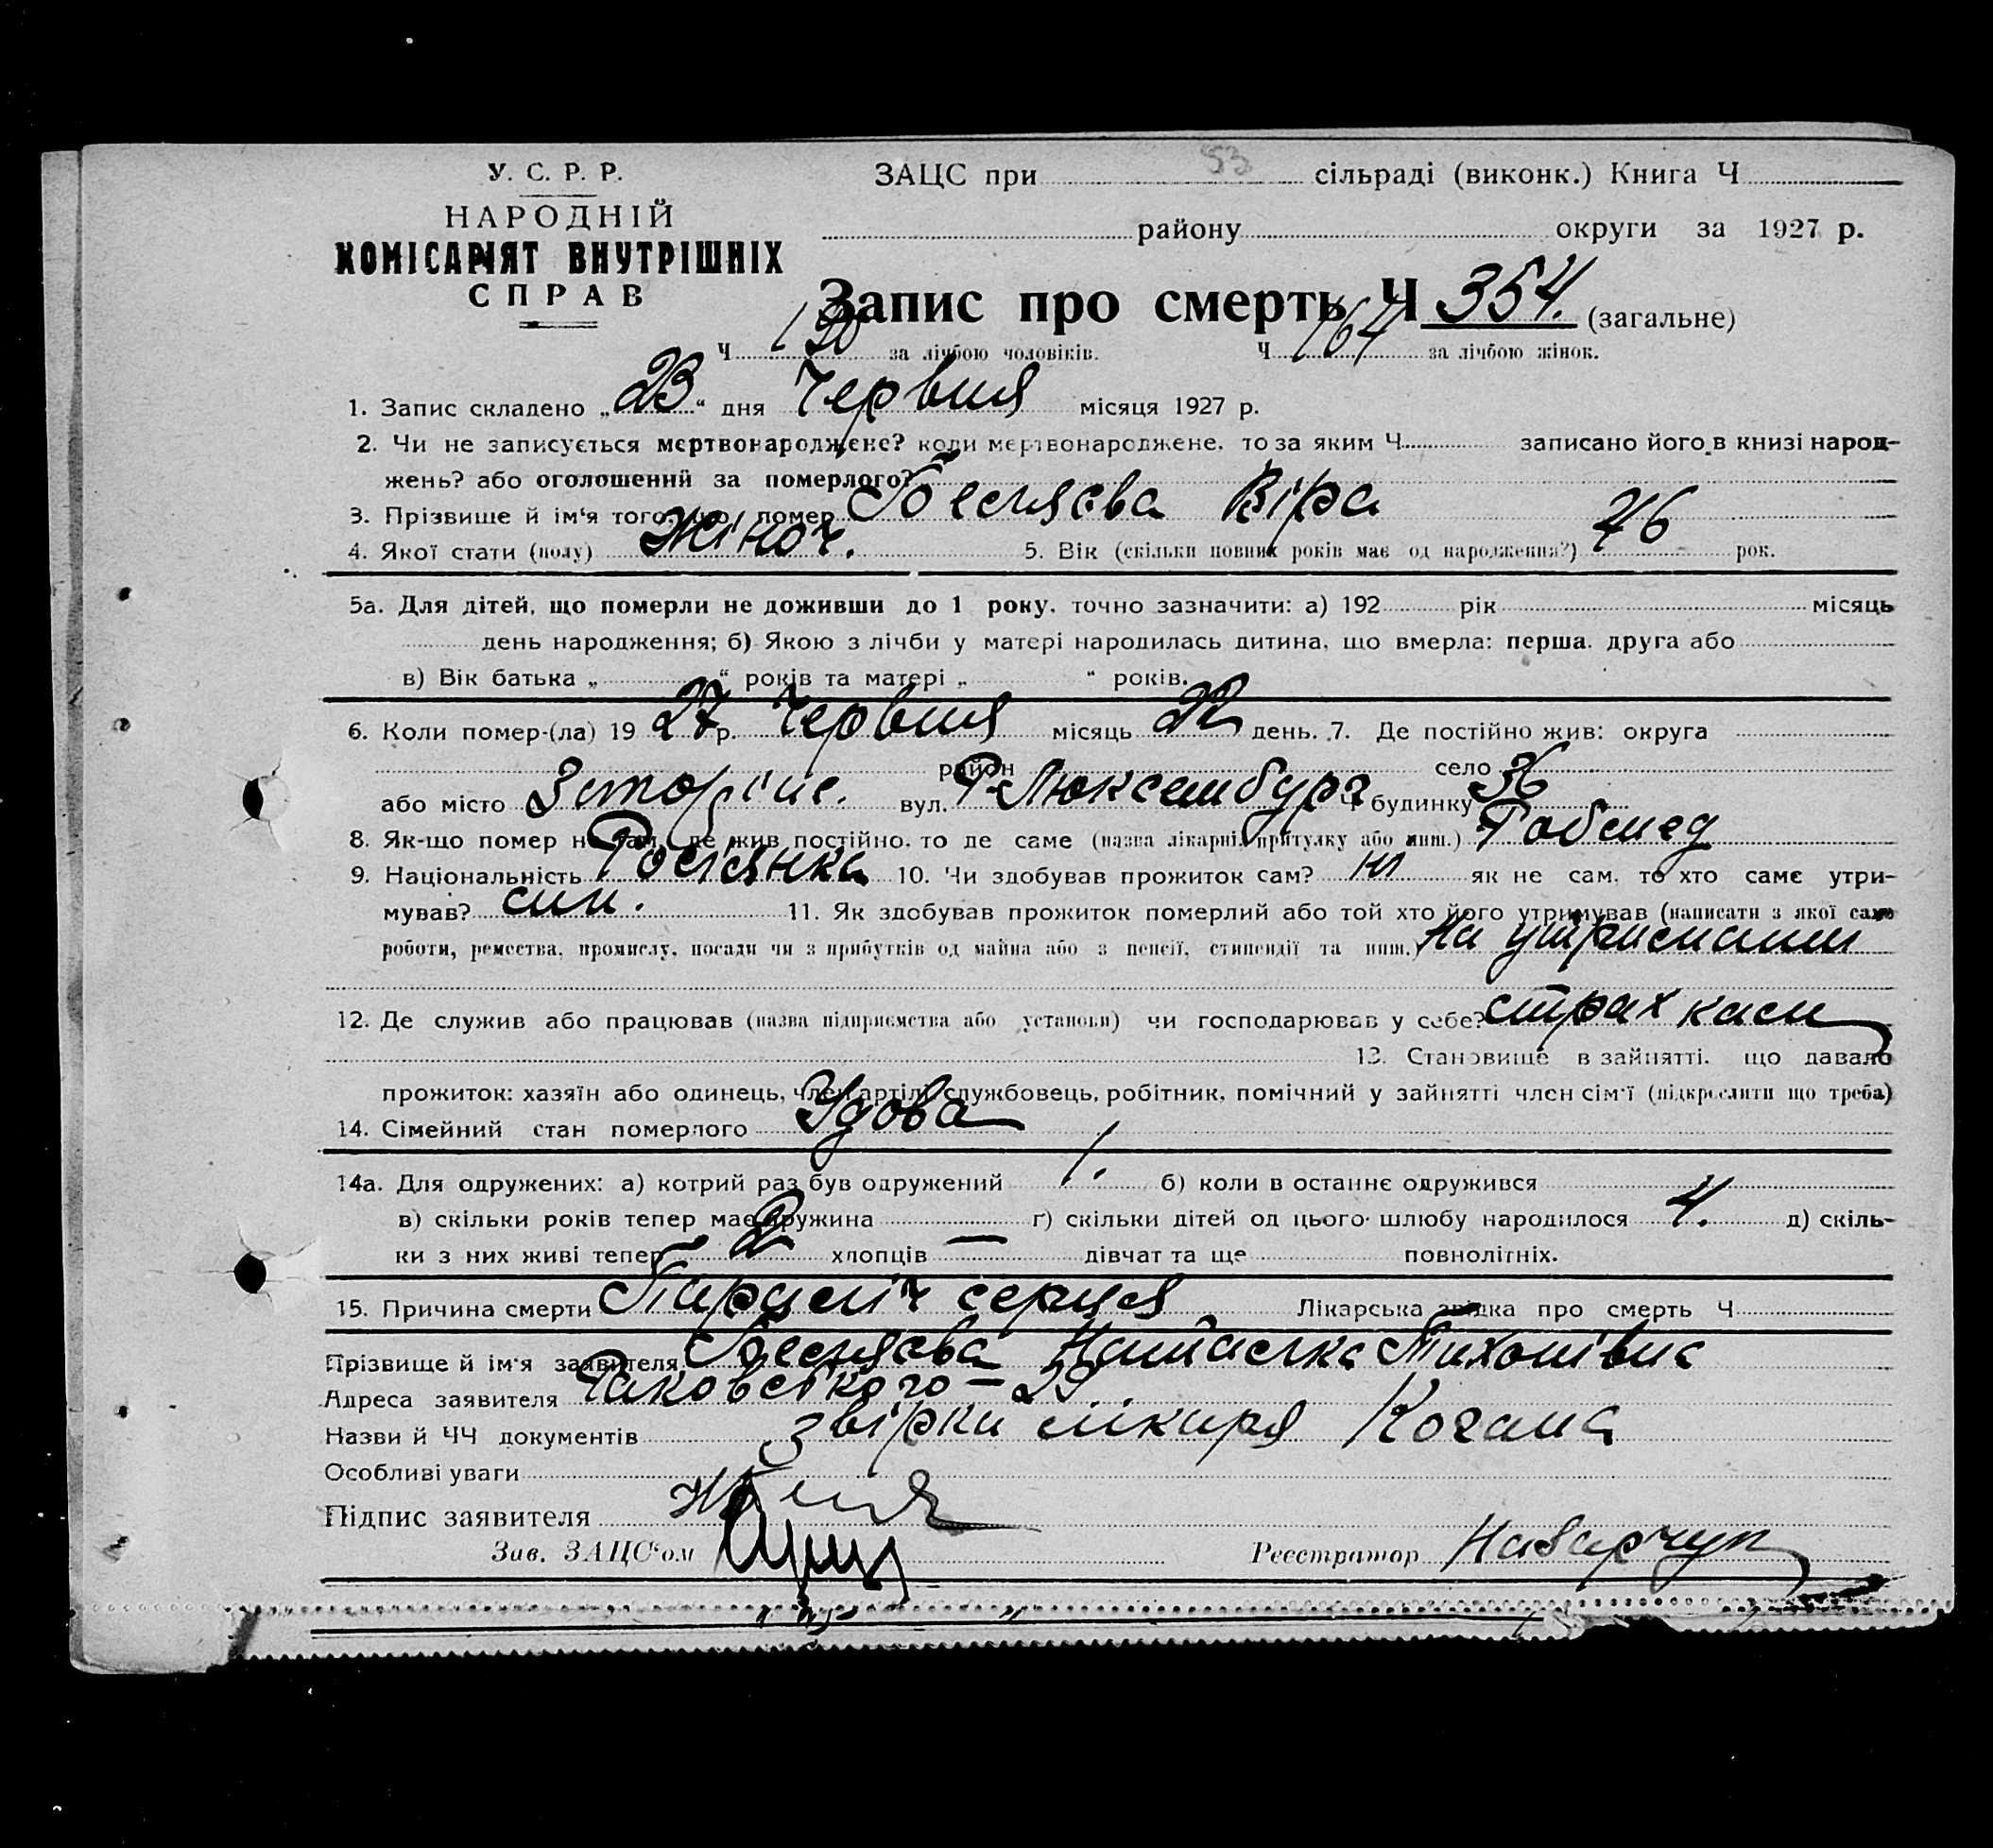 У. С. Р. Р.
НАРОДНІЙ
КОМІСАРІЯТ ВНУТРІШНІХ
СПРАВ
53
ЗАЦС при сільраді (виконк.) Книга Ч
району округи за 1927 р.
Запис про смерть Ч 354. (загальне)
Ч 190 за лічбою чоловіків. Ч 164 за лічбою жінок.
1. Запис складено „23“ дня Червня місяця 1927 р.
2. Чи не записується мертвонароджене? коли мертвонароджене, то за яким Ч записано його в книзі народ-
жень? або оголошений за померлого?
3. Прізвище й ім‘я того, що помер Віра
4. Якої стати (полу) Жіноч. 5. Вік (скільки повних років має од народження?) 76 рок.
5а. Для дітей, що померли не доживши до 1 року, точно зазначити: а) 192 рік місяць
день народження; б) Якою з лічби у матері народилась дитина, що вмерла: перша, друга або
в) Вік батька „ “ років та матері „ “ років.
6. Коли помер-(ла) 1927 р. Червня місяць 22 день. 7. Де постійно жив: округа
район село
або місто вул. Р. Люксембург Ч будинку 36
8. Як-що помер не там, де жив постійно, то де саме (назва лікарні, притулку або инш.)
9. Національність Росіянка 10. Чи здобував прожиток сам? ні як не сам, то хто саме утри-
мував? син. 11. Як здобував прожиток померлий або той хто його утримував (написати з якої саме
роботи, ремества, промислу, посади чи з прибутків од майна або з пенсії, стипендії та инш.) На утриманні
12. Де служив або працював (назва підприємства або установи) чи господарював у себе? страх каси
13. Становище в зайнятті, що давало
прожиток: хазяїн або одинець, член артілі, службовець, робітник, помічний у зайнятті член сім‘ї (підкреслити що треба)
14. Сімейний стан померлого Удова
14а. Для одружених: а) котрий раз був одружений 1. б) коли в останнє одружився
в) скільки років тепер має дружина г) скільки дітей од цього шлюбу народилося 4. д) скіль-
ки з них живі тепер 2 хлопців — дівчат та ще повнолітніх.
15. Причина смерти Параліч серця Лікарська звідка про смерть Ч
Прізвище й ім‘я заявителя Тихонівна
Адреса заявителя Раковського — 29
Назви й ЧЧ документів лікаря Когана
Особливі уваги
Підпис заявителя
Зав. ЗАЦС‘ом Реєстратор